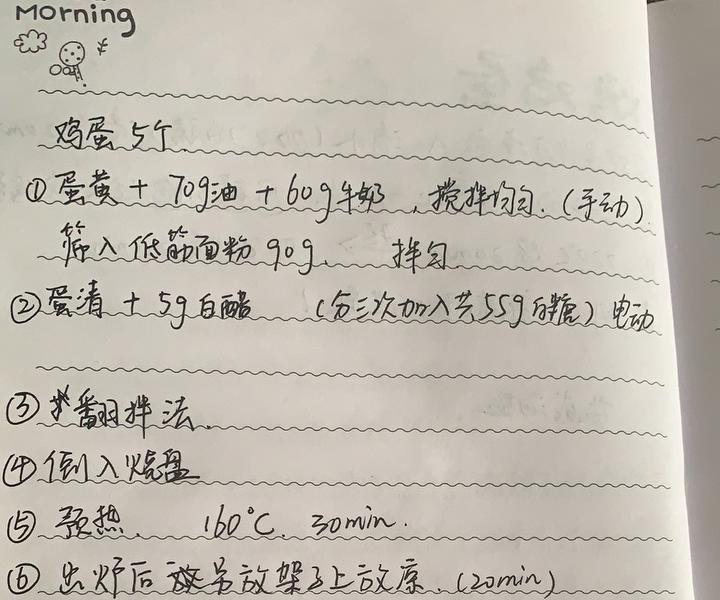 Morning
鸡蛋 5个.
① 蛋黄 + 70g油 + 60g牛奶 , 搅拌均匀. (手动)
筛入低筋面粉 90g. 拌匀
② 蛋清 + 5g白醋 (分三次加入共55g白糖) 电动
③ 翻拌法.
④ 倒入烧盘
⑤ 预热. 160°C. 30min.
⑥ 出炉后 另放架子上放凉. (20min)